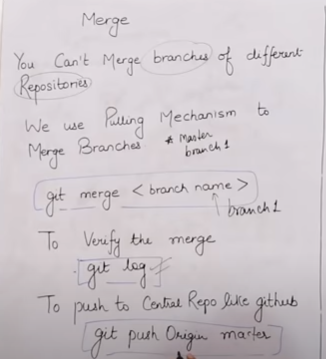 Merge
You Can't Merge branches of different
Repositories
We use Pulling Mechanism to
Merge Branches * Master
branch1
git merge < branch name >
branch1
To Verify the merge
git log
To push to Central Repo like github
git push Origin master